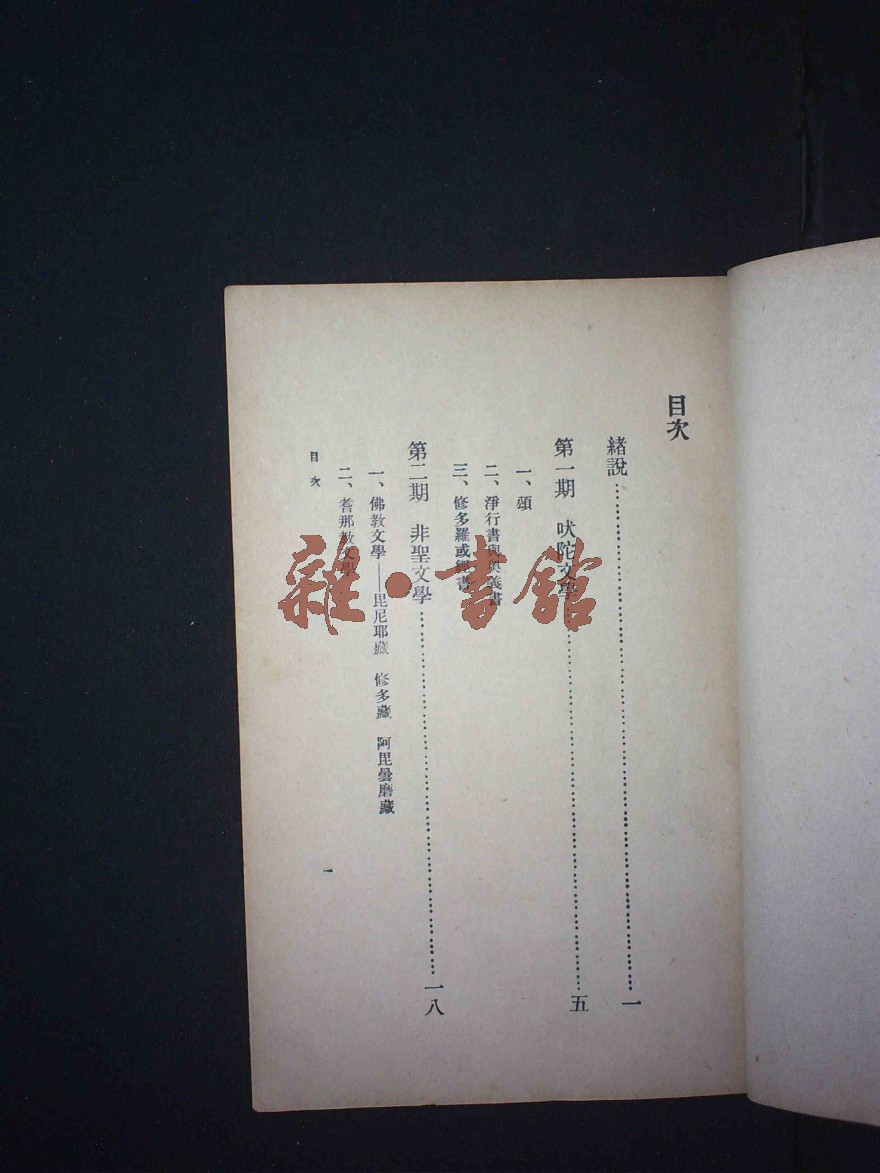 目次
緒說……一
第一期　吠陀文學……五
一、頌
二、淨行書與奧義書
三、修多羅或經書
第二期　非聖文學……一八
一、佛教文學——毘尼耶藏　修多藏　阿毘曇磨藏
二、耆那教文學
目次
一
雜·書館